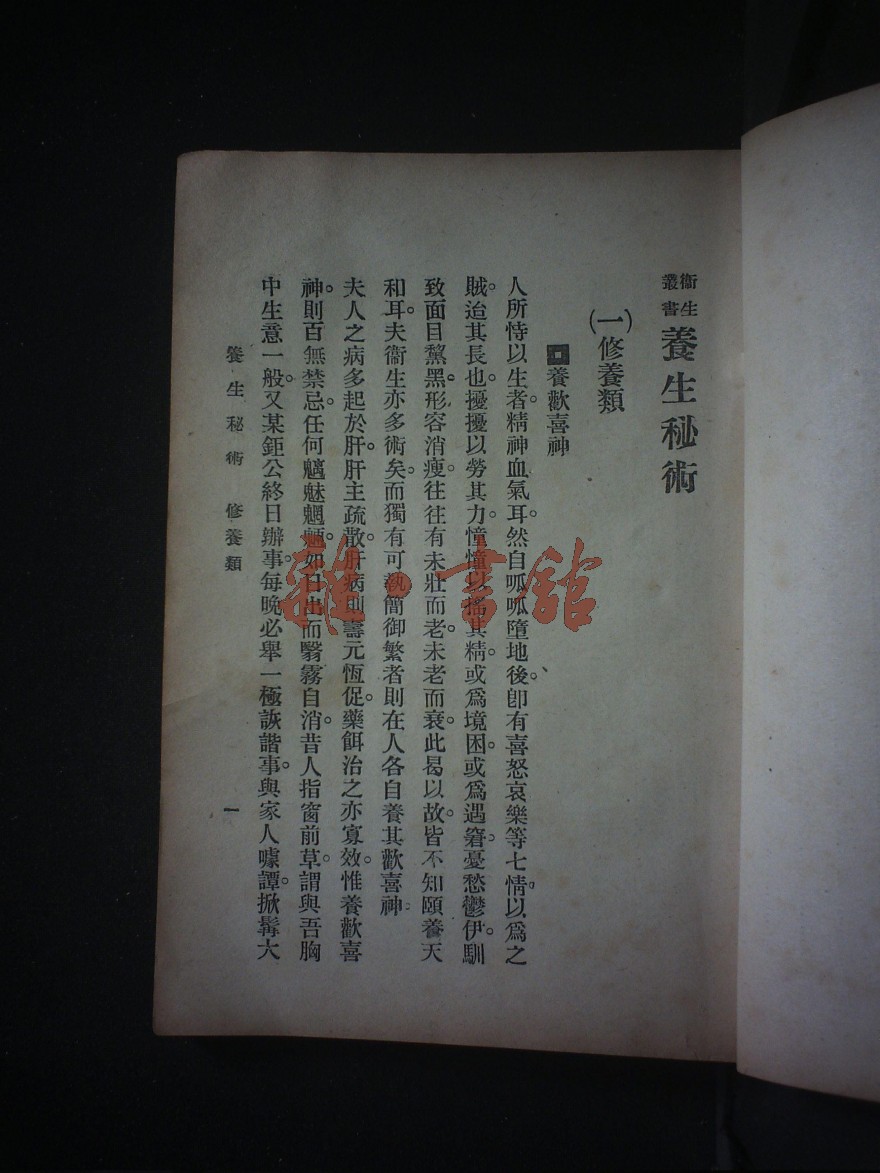 衞生叢書 養生秘術
(一)修養類
養歡喜神
人所恃以生者。精神血氣耳。然自呱呱墮地後。卽有喜怒哀樂等七情。以爲之
賊。迨其長也。擾擾以勞其力。憧憧以搖其精。或爲境困。或爲遇窘。憂愁鬱伊。馴
致面目黧黑。形容消瘦。往往有未壯而老。未老而衰。此曷以故。皆不知頤養天
和耳。夫衞生亦多術矣。而獨有可執簡御繁者。則在人各自養其歡喜神。
夫人之病多起於肝。肝主疏散。肝病則壽元恆促。藥餌治之亦寡效。惟養歡喜
神。則百無禁忌。任何魑魅魍魎。如日出而翳霧自消。昔人指窗前草。謂與吾胸
中生意一般。又某鉅公終日辦事。每晚必舉一極詼諧事。與家人噱譚。掀髯大
養生秘術 修養類
一
雜·書館